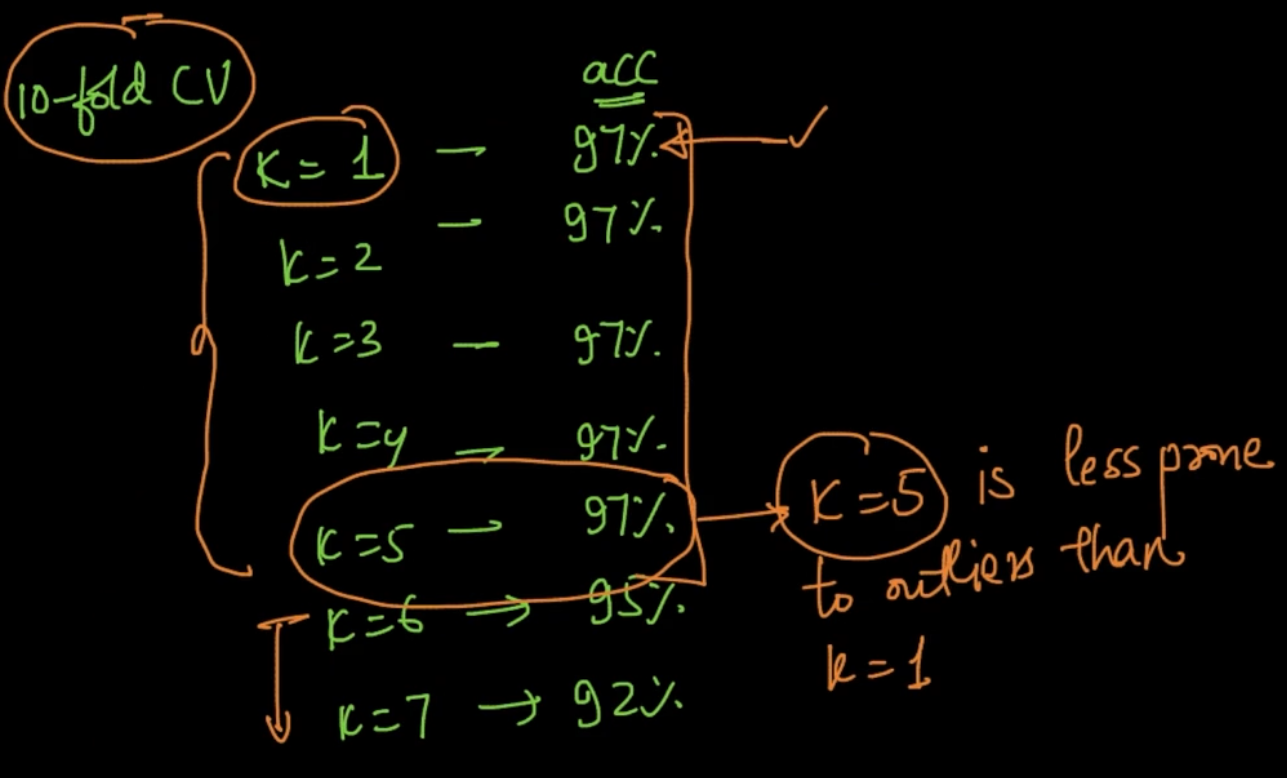 10-fold CV
acc
K = 1 - 97%
K = 2 - 97%
K = 3 - 97%
K = 4 - 97%
K = 5 - 97%
K = 6 → 95%
K = 7 → 92%
K = 5 is less prone
to outliers than
k = 1